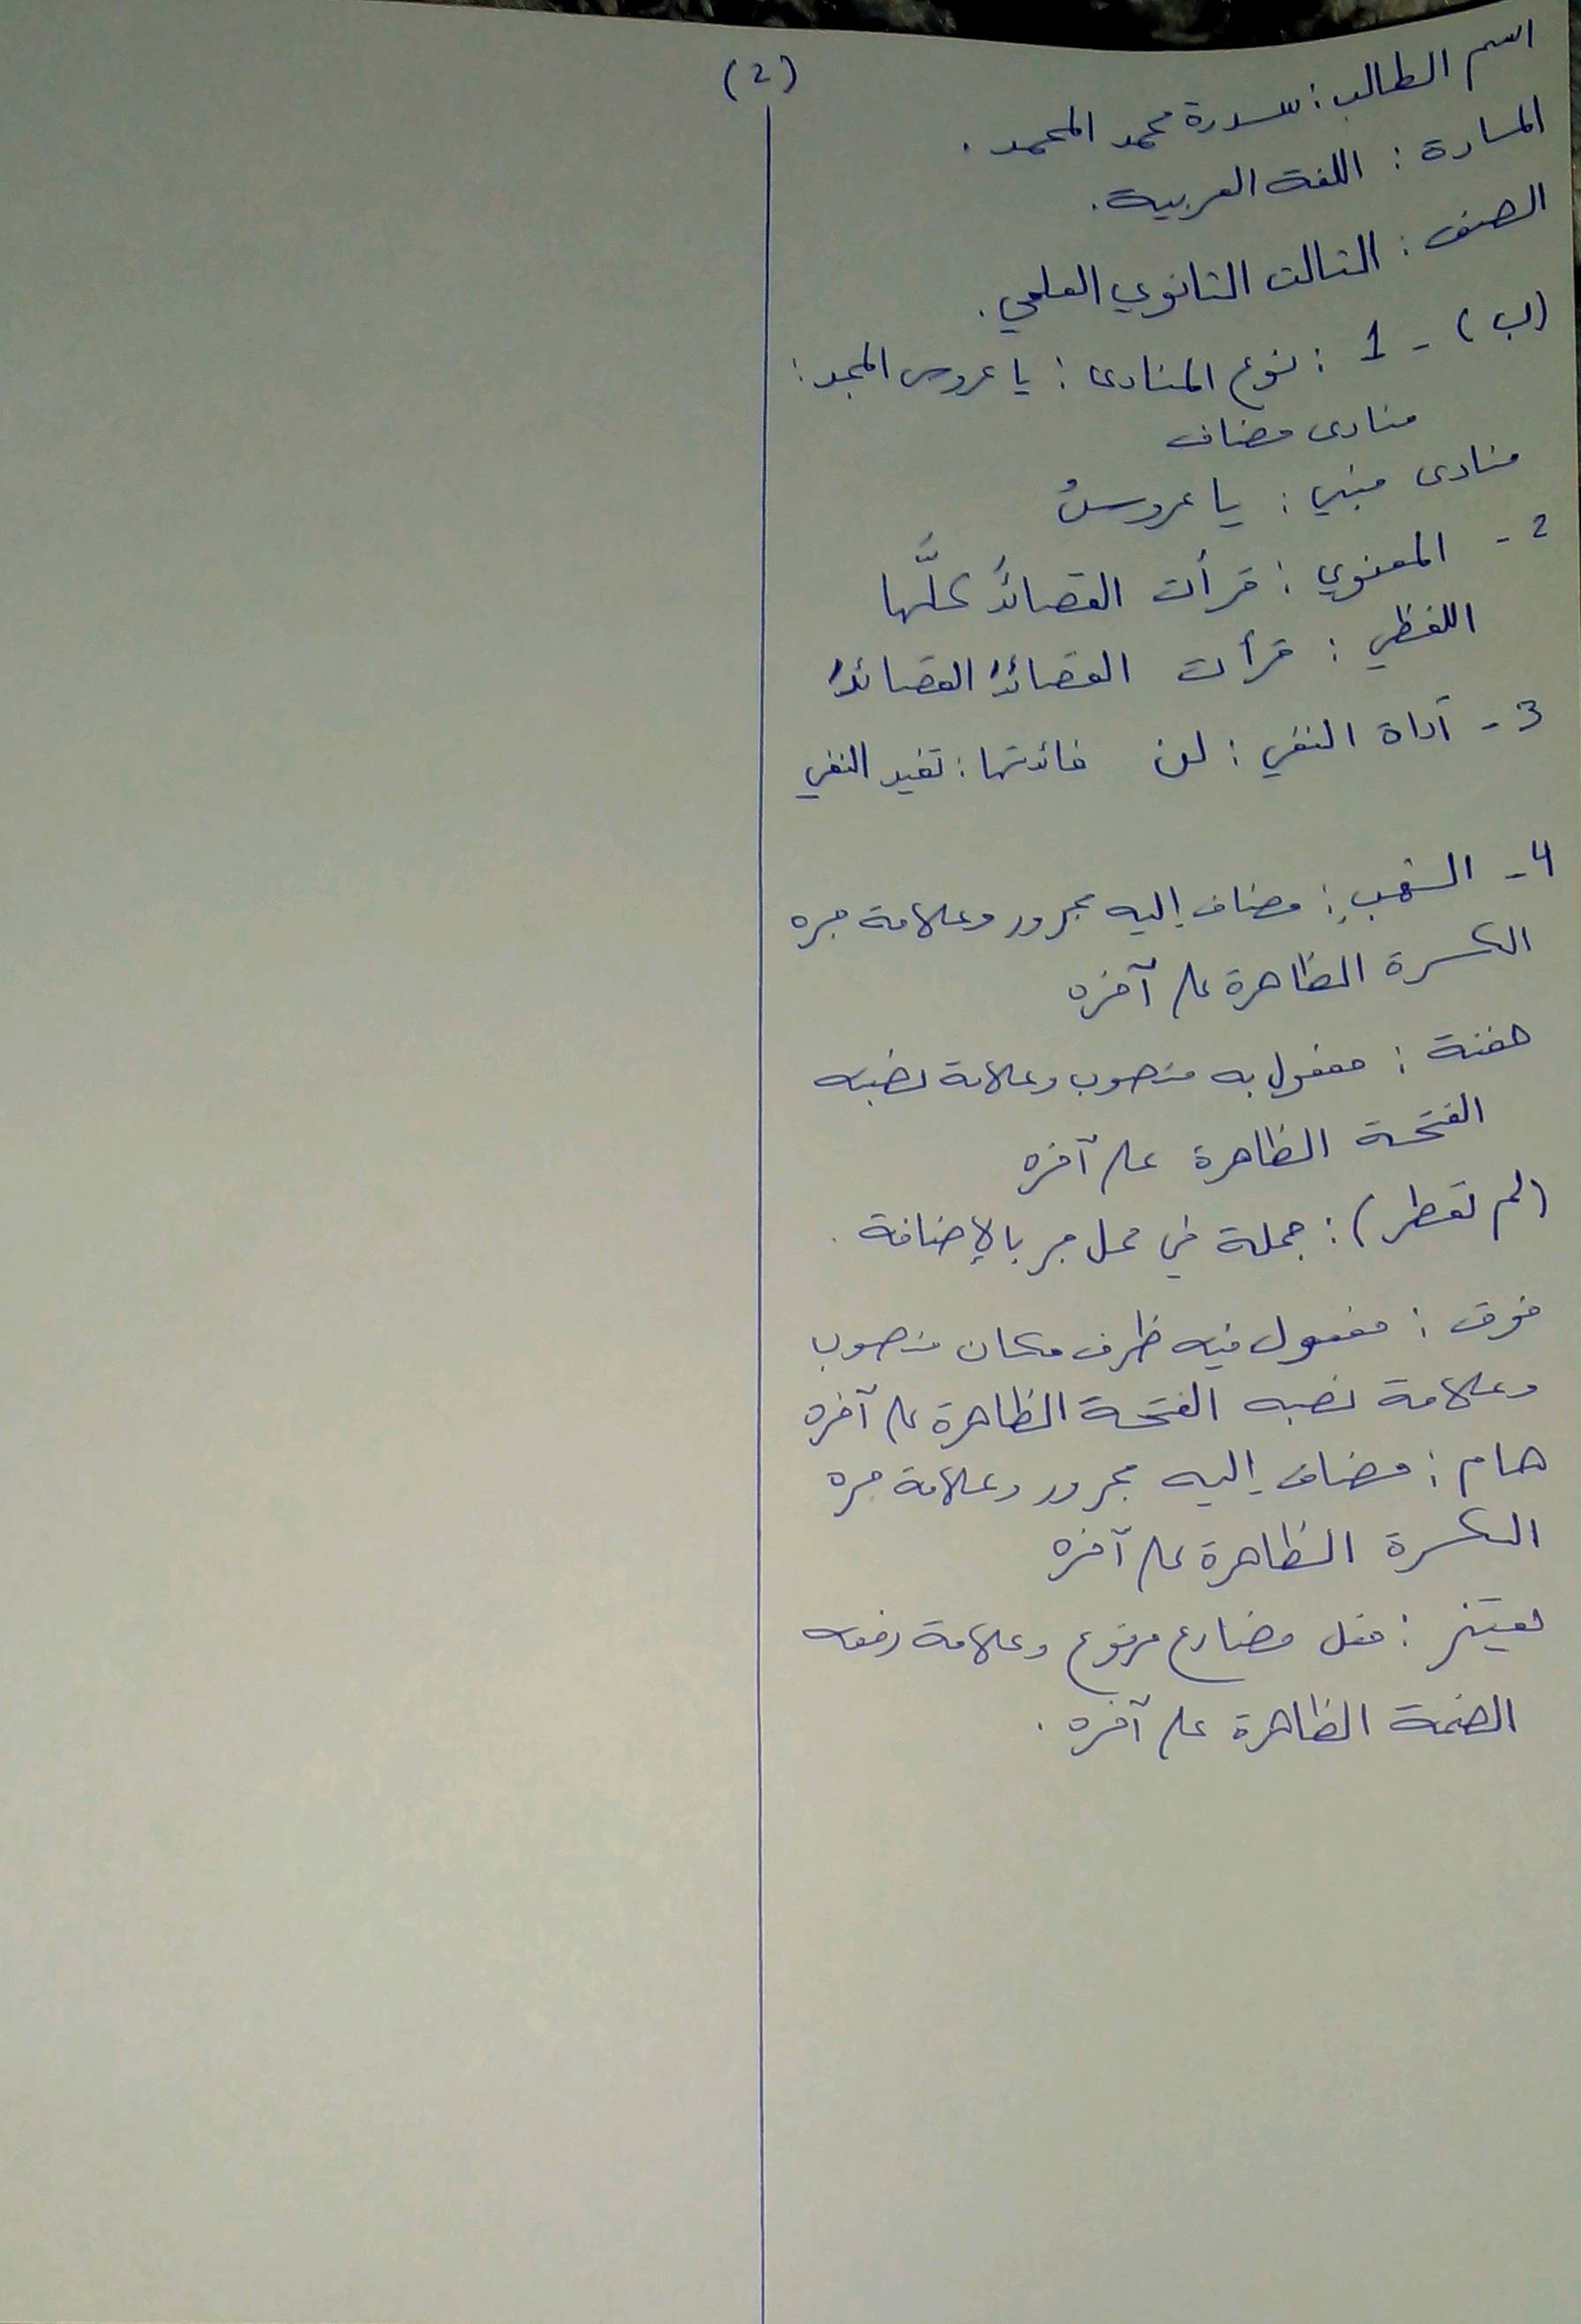 (2)
اسم الطالب: سدرة محمد المحمد.
المادة: اللغة العربية.
الصف: الثالث الثانوي العلمي.
(ب) - 1: نوع المنادى: يا عروس المجد:
منادى مضاف
منادى مبني: يا عروسُ
2- المعنوي: قرأت القصائدَ كلَّها
اللفظي: قرأت القصائدَ القصائدَ
3- أداة النفي: لن فائدتها: تفيد النفي
4- الشهبِ: مضاف إليه مجرور وعلامة جره
الكسرة الظاهرة على آخره
حفنة: مفعول به منصوب وعلامة نصبه
الفتحة الظاهرة على آخره
(لم تعطر): جملة في محل جر بالإضافة.
فوق: مفعول فيه ظرف مكان منصوب
وعلامة نصبه الفتحة الظاهرة على آخره
هام: مضاف إليه مجرور وعلامة جره
الكسرة الظاهرة على آخره
فعل مضارع مرفوع وعلامة رفعه
الضمة الظاهرة على آخره.